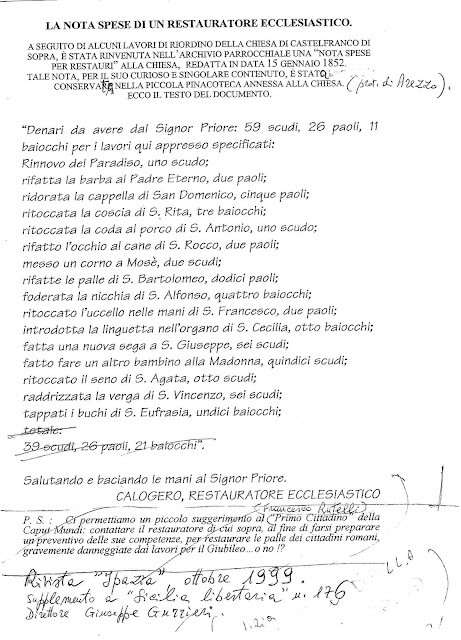 LA NOTA SPESE DI UN RESTAURATORE ECCLESIASTICO.
A SEGUITO DI ALCUNI LAVORI DI RIORDINO DELLA CHIESA DI CASTELFRANCO DI
SOPRA, È STATA RINVENUTA NELL'ARCHIVIO PARROCCHIALE UNA "NOTA SPESE
PER RESTAURI" ALLA CHIESA, REDATTA IN DATA 15 GENNAIO 1852.
TALE NOTA, PER IL SUO CURIOSO E SINGOLARE CONTENUTO, È STATA
CONSERVATA NELLA PICCOLA PINACOTECA ANNESSA ALLA CHIESA. (prov. di Arezzo).
ECCO IL TESTO DEL DOCUMENTO.
"Denari da avere dal Signor Priore: 59 scudi, 26 paoli, 11
baiocchi per i lavori qui appresso specificati:
Rinnovo del Paradiso, uno scudo;
rifatta la barba al Padre Eterno, due paoli;
ridorata la cappella di San Domenico, cinque paoli;
ritoccata la coscia di S. Rita, tre baiocchi;
ritoccata la coda al porco di S. Antonio, uno scudo;
rifatto l'occhio al cane di S. Rocco, due paoli;
messo un corno a Mosè, due scudi;
rifatte le palle di S. Bartolomeo, dodici paoli;
foderata la nicchia di S. Alfonso, quattro baiocchi;
ritoccato l'uccello nelle mani di S. Francesco, due paoli;
introdotta la linguetta nell'organo di S. Cecilia, otto baiocchi;
fatta una nuova sega a S. Giuseppe, sei scudi;
fatto fare un altro bambino alla Madonna, quindici scudi;
ritoccato il seno di S. Agata, otto scudi;
raddrizzata la verga di S. Vincenzo, sei scudi;
tappati i buchi di S. Eufrasia, undici baiocchi;
totale:
39 scudi, 26 paoli, 21 baiocchi".
Salutando e baciando le mani al Signor Priore.
CALOGERO, RESTAURATORE ECCLESIASTICO
(Francesco Rutelli)
P. S. : Ci permettiamo un piccolo suggerimento al "Primo Cittadino" della
Caput Mundi: contattare il restauratore di cui sopra, al fine di farsi preparare
un preventivo delle sue competenze, per restaurare le palle dei cittadini romani,
gravemente danneggiate dai lavori per il Giubileo...o no !?
Rivista "Ipazia" ottobre 1999.
Supplemento a "Sicilia libertaria" n. 176
Direttore Giuseppe Gurrieri.